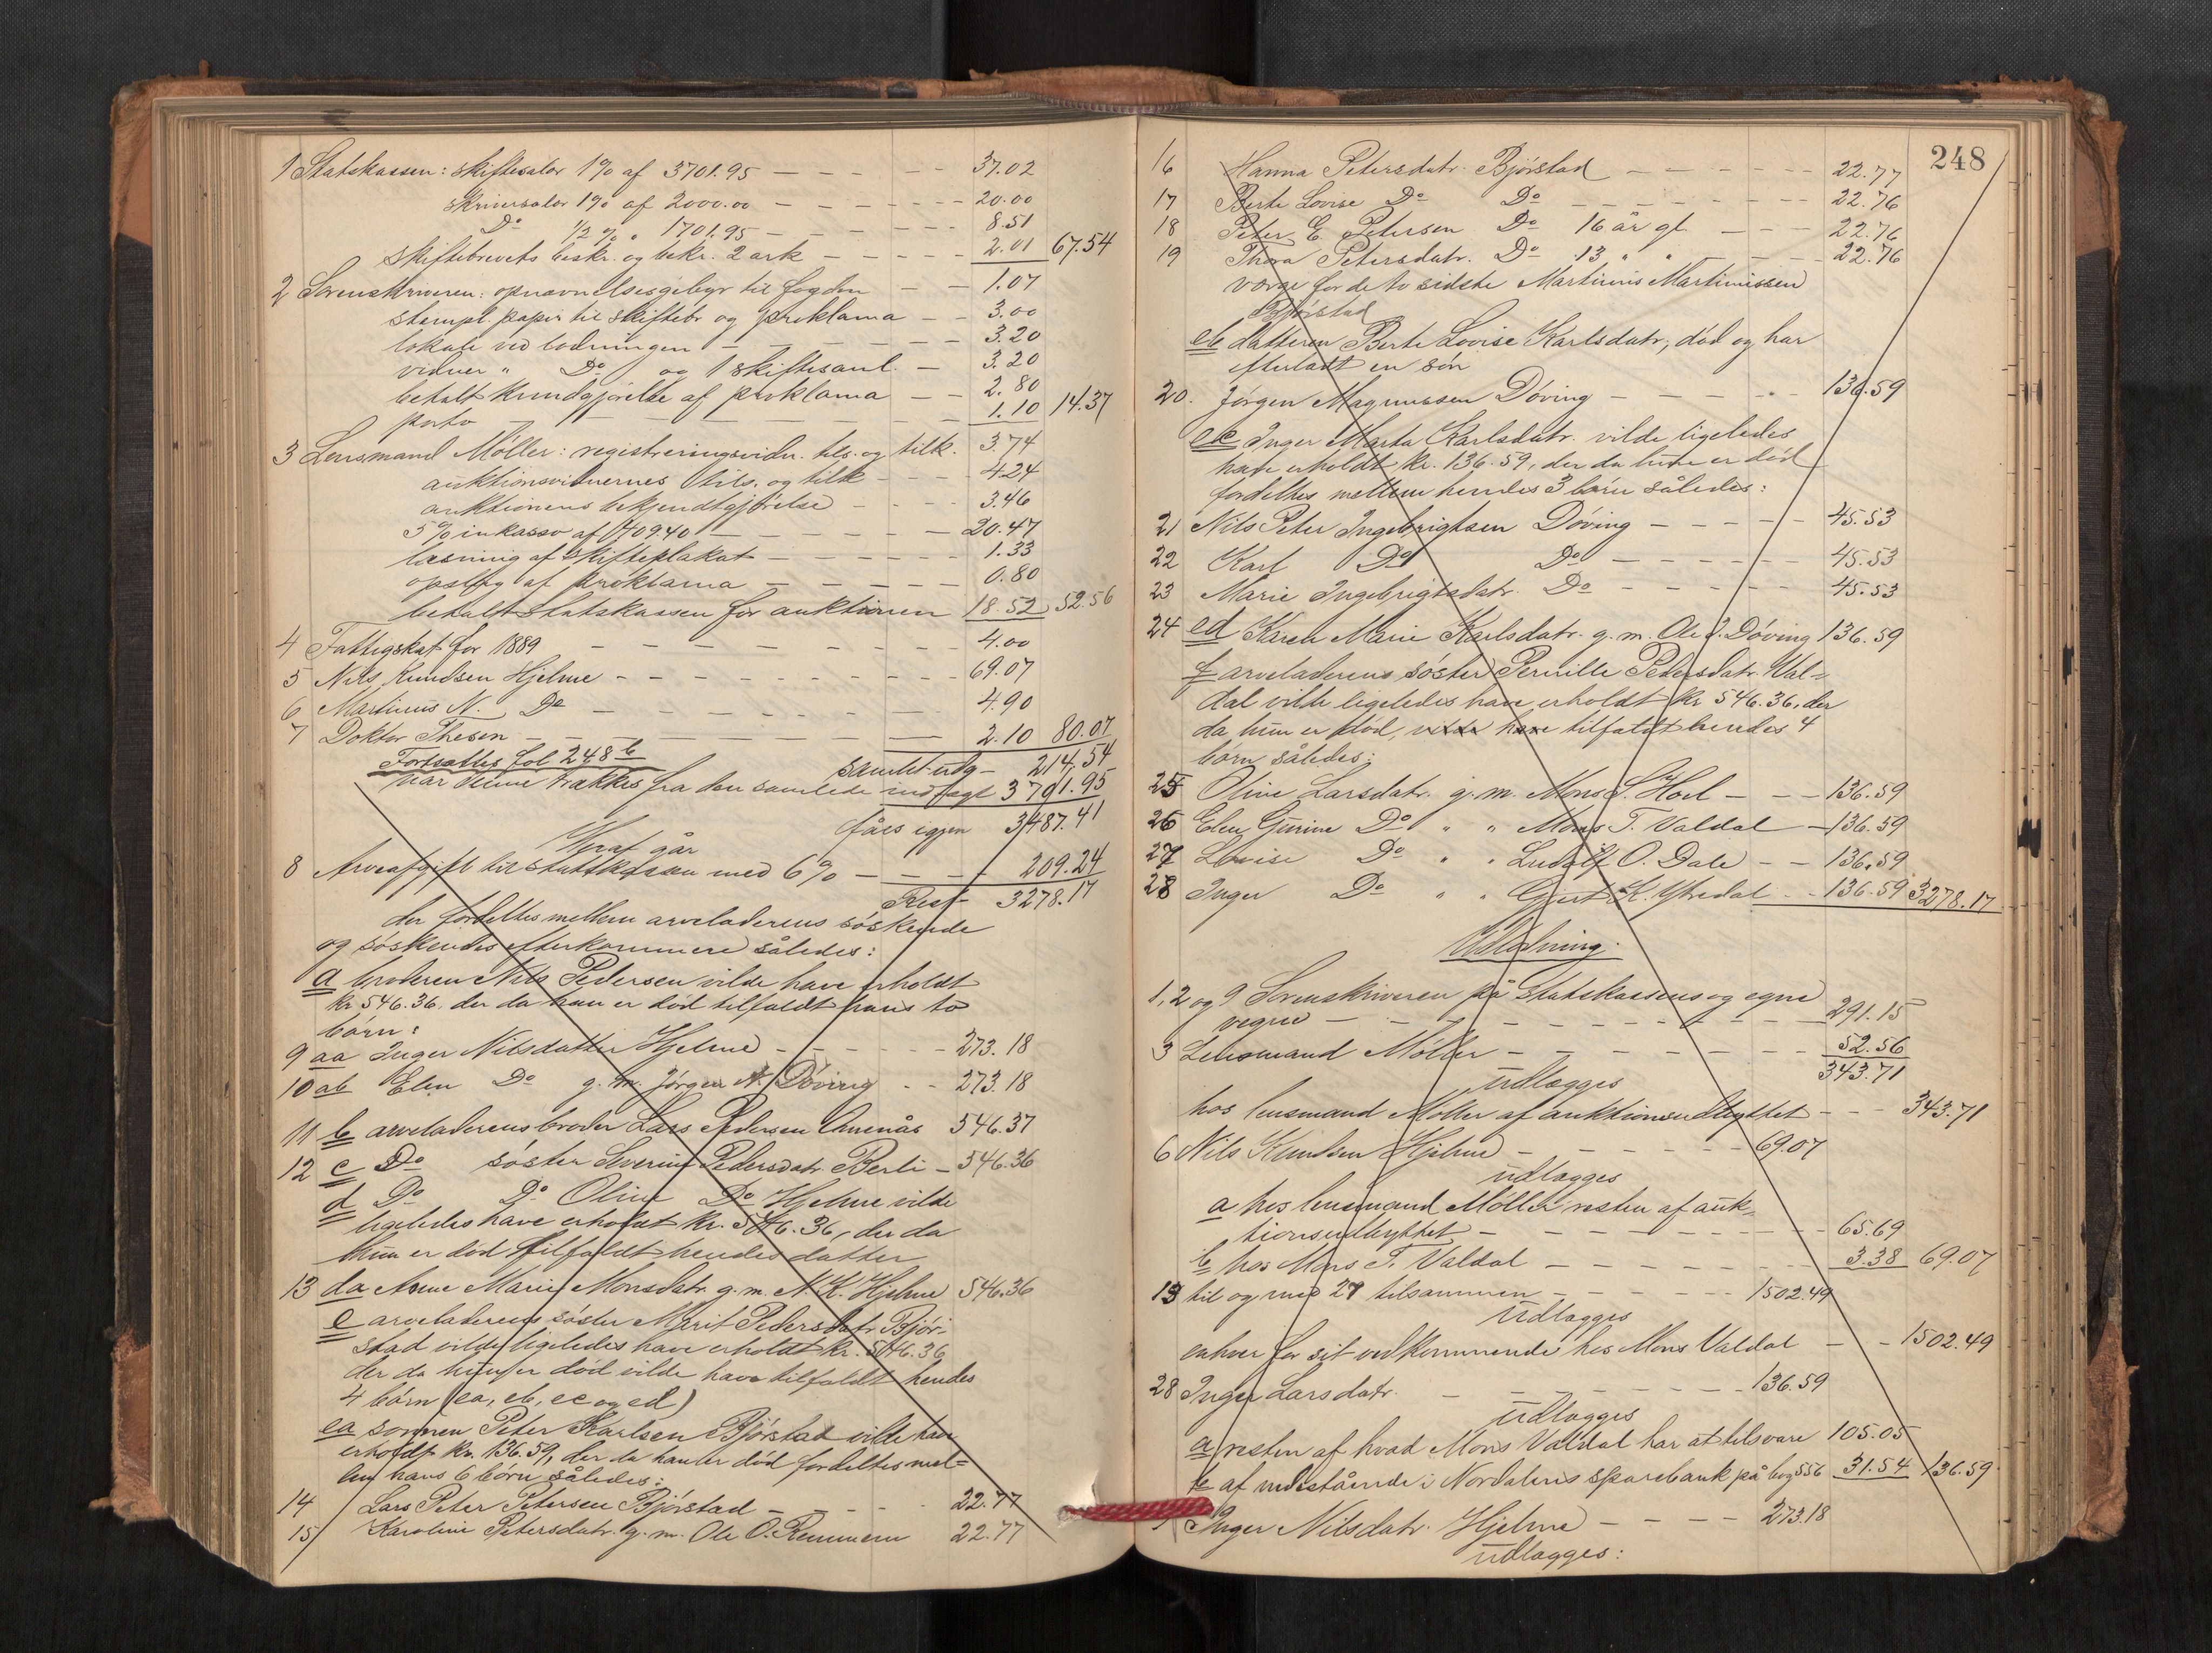 1 Statskassen: skiftesalær 1% af 3701.95 — — — — — 37.02
skriversalær 1% af 2000.00 — — — — — 20.00
Do ½ % " 1701.95 — — — — — 8.51
skiftebrevets beskr. og bekr. 2 ark — — — — — 2.01 67.54
2 Sorenskriveren: opnævnelsesgebyr til fogden — — 1.07
stempl. papir til skiftebr og proklama — — 3.00
lokale ved lodningen — — — — — 3.20
vidner " Do og 1 skiftesaml. — 3.20
betalt kundgjørelse af proklama — — 2.80
porto — — — — — 1.10 14.37
3 Lensmand Møller: registreringsvidn. tils. og tilk. 3.74
auktionsvidnernes tils. og tilk — — — 4.24
auktionens bekjendtgjørelse — — — 3.46
5% inkasso af 409.40 — — — — — 20.47
læsning af skifteplakat — — — — — 1.33
opslag af proklama — — — — — 0.80
betalt Statskassen for auktionen 18.52 52.56
4 Fattigskat for 1889 — — — — — 4.00
5 Nils Knudsen Hjelme — — — — — 69.07
6 Martinus N. Do — — — — — 4.90
7 Doktor Thesen — — — — — 2.10 80.07
Fortsættes fol 248 b samlet udg — 214.54
når denne trækkes fra den samlede indtægt 3701.95
fåes igjen 3487.41
Heraf går
8 Arveafgift til statskassen med 6% — — — — 209.24
Rest — 3278.17
der fordeltes mellem arveladerens søskende
og søskendes efterkommere således:
a broderen Nils Pedersen vilde have erholdt
kr 546.36. der da han er död tilfaldt hans to
børn:
9 aa Inger Nilsdatter Hjelme — — — — — 273.18
10 ab Elen Do g. m. Jørgen N. Døving — — 273.18
11 b arveladerens broder Lars Pedersen Omenås 546.37
12 c Do søster Severine Pedersdatr. Berli — 546.36
d Do Do Oline Do Hjelme vilde
ligeledes have erholdt kr. 546.36, der da
hun er död tilfaldt hendes datter
13 da Anne Marie Monsdatr. g. m. N. K. Hjelme 546.36
e arveladerens søster Marit Pedersdatr. Bjør-
stad vilde ligeledes have erholdt kr. 546.36,
der da hun er död vilde have tilfaldt hendes
4 børn (ea, eb, ec og ed)
ea sønnen Peter Karlsen Bjørstad vilde have
erholdt kr. 136.59, der da han er död fordeltes mel=
lem hans 6 børn således:
14 Lars Peter Petersen Bjørstad — — — — 22.77
15 Karoline Petersdatr. g. m. Ole O. Remmem 22.77
248
16 Hanna Petersdatr. Bjørstad — — — — — 22.77
17 Berte Lovise Do Do — — — — — 22.76
18 Peter E. Petersen Do 16 år gl. — — — 22.76
19 Thora Petersdatr. Do 13 " " — — — 22.76
værge for de to sidste Martinus Martinussen
Bjørstad
eb datteren Berte Lovise Karlsdatr., död og har
efterladt en søn
20. Jørgen Magnussen Döving — — — — 136.59
ec Inger Marta Karlsdatr. vilde ligeledes
have erholdt kr. 136.59, der da hun er död
fordeltes mellem hendes 3 børn således:
21 Nils Peter Ingebrigtsen Döving — — — — — 45.53
22 Karl Do Do — — — — — 45.53
23 Marie Ingebrigtsdatr. Do — — — — — 45.53
24 ed Karen Marie Karlsdatr. g. m. Ole I. Döving 136.59
f arveladerens søster Pernille Pedersdatr. Val=
dal vilde ligeledes have erholdt kr 546.36, der
da hun er död, vilde have tilfaldt hendes 4
børn således:
25 Oline Larsdatr. g. m. Mons S. Hoel — — — 136.59
26 Elen Gurine Do " " Mons T. Valdal — 136.59
27 Lovise Do " " Ludolf O. Dale — — 136.59
28 Inger Do " " Gjert K. Ytredal — — 136.59 3278.17
Udlodning.
1, 2 og 9 Sorenskriveren på Statskassens og egne
vegne — — — — — — — — 291.15
3 Lensmand Møller — — — — — — 52.56
343.71
udlægges
hos lensmand Møller af auktionsudbyttet — — — 343.71
6 Nils Knudsen Hjelme — — — — — 69.07
udlægges
a hos lensmand Møller resten af auk=
tionsudbyttet — — — — — — 65.69
b hos Mons T. Valdal — — — — — — 3.38 69.07
13 til og med 27 tilsammen — — — — — 1502.49
udlægges
enhver for sit vedkommende hos Mons Valdal — — 1502.49
28 Inger Larsdatr. — — — — — — 136.59
udlægges
a resten af hvad Mons Valdal har at tilsvare 105.05
b af indestående i Nordalens sparebank på bog 556 31.54 136.59
9 Inger Nilsdatr. Hjelme — — — — 273.18
udlægges: